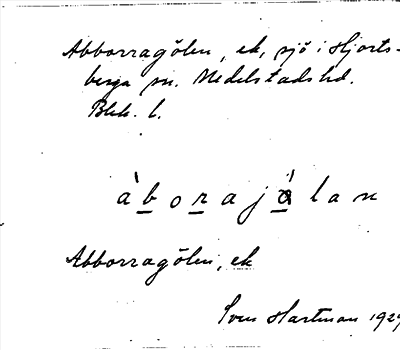 Abborragölen, ek, sjö i Hjorts-
berga sn. Medelstads hd.
Blek. l.
àborajàlan
Abborragölen, ek
Sven Hartman 192